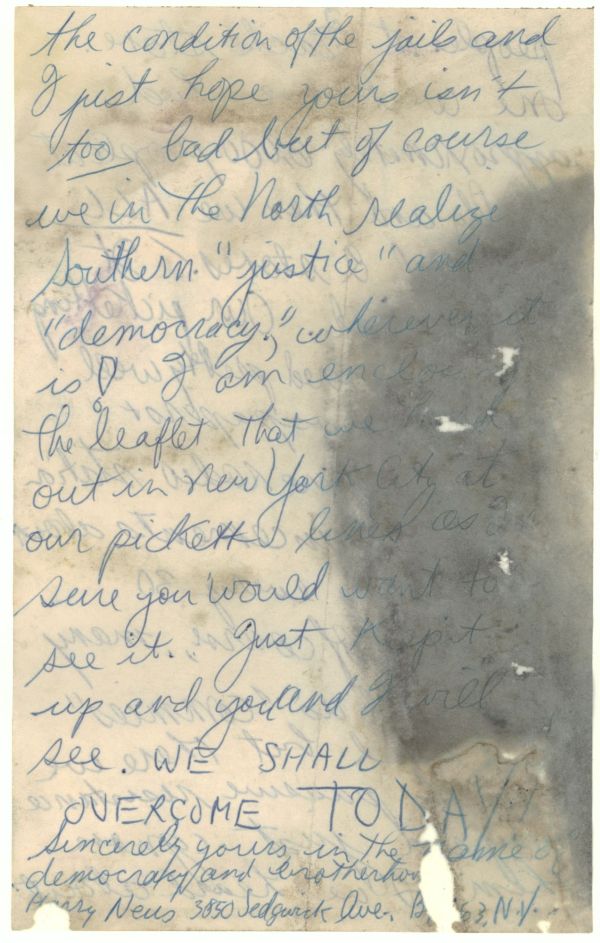 the condition of the jails and
I just hope yours isn't
too bad but of course
we in the North realize
southern "justice" and
"democracy," wherever it
is! I am enclosing
the leaflet that we hand
out in New York City at
our pickett lines as I'm
sure you would want to
see it. Just keep it
up and you and I will
see. WE SHALL
OVERCOME TODAY!!
Sincerely yours in the name of
democracy and brotherhood
Harry 3850 Sedgwick Ave. 63, N.Y.